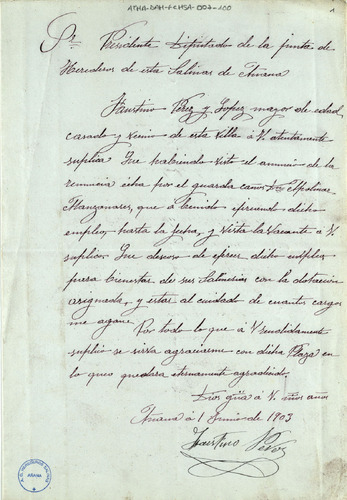 ATHA-DAH-FCHSA-007-100
1
Sr. Presidente Diputado de la junta de
Herederos de esta Salinas de Añana
Faustino Perez y Lopez mayor de edad,
casado y vecino de esta villa á V. atentamente
suplica Que habiendo visto el anuncio de la
renuncia echa por el guarda caños Dn Apolinar
Manzanares, que á benido ejerciendo dicho
empleo, hasta la fecha, y vista la vacante á V.
suplico. Que deseoso de ejercer dicho empleo
para bienestar de sus Salinerias con la dotacion
asignada, y estar al cuidado de cuantos cargos
me
Por todo lo que á V rendidamente
suplico se sirva agraciarme con dicha Plaza en
lo que quedara eternamente agradecido.
Dios güe á V. muchos años
Añana á 1 Junio de 1903
Faustino Perez
AÑANA